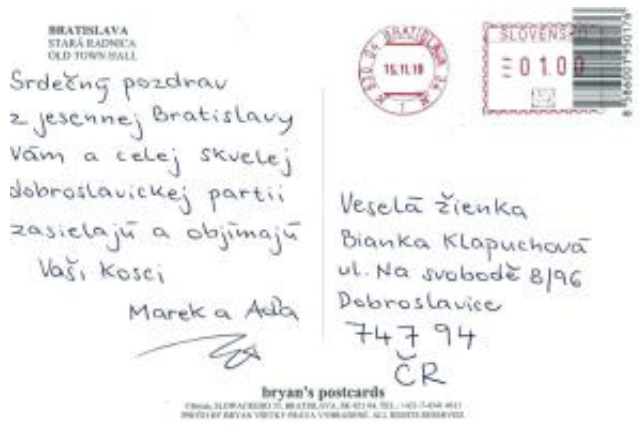 BRATISLAVA
STARÁ RADNICA
OLD TOWN HALL
Srdečný pozdrav
z jesennej Bratislavy
Vám a celej skvelej
dobroslavickej partii
zasielajú a objímajú
Vaši kosci
Marek a Aďa
BRATISLAVA
15.11.18
SLOVENSKO
01.00
8586001950176
Veselá žienka
Bianka Klapuchová
ul. Na svobodě 8/96
Dobroslavice
747 94
ČR
bryan's postcards
PHOTO BY BRYAN VŠETKY PRÁVA VYHRADENÉ. ALL RIGHTS RESERVED.